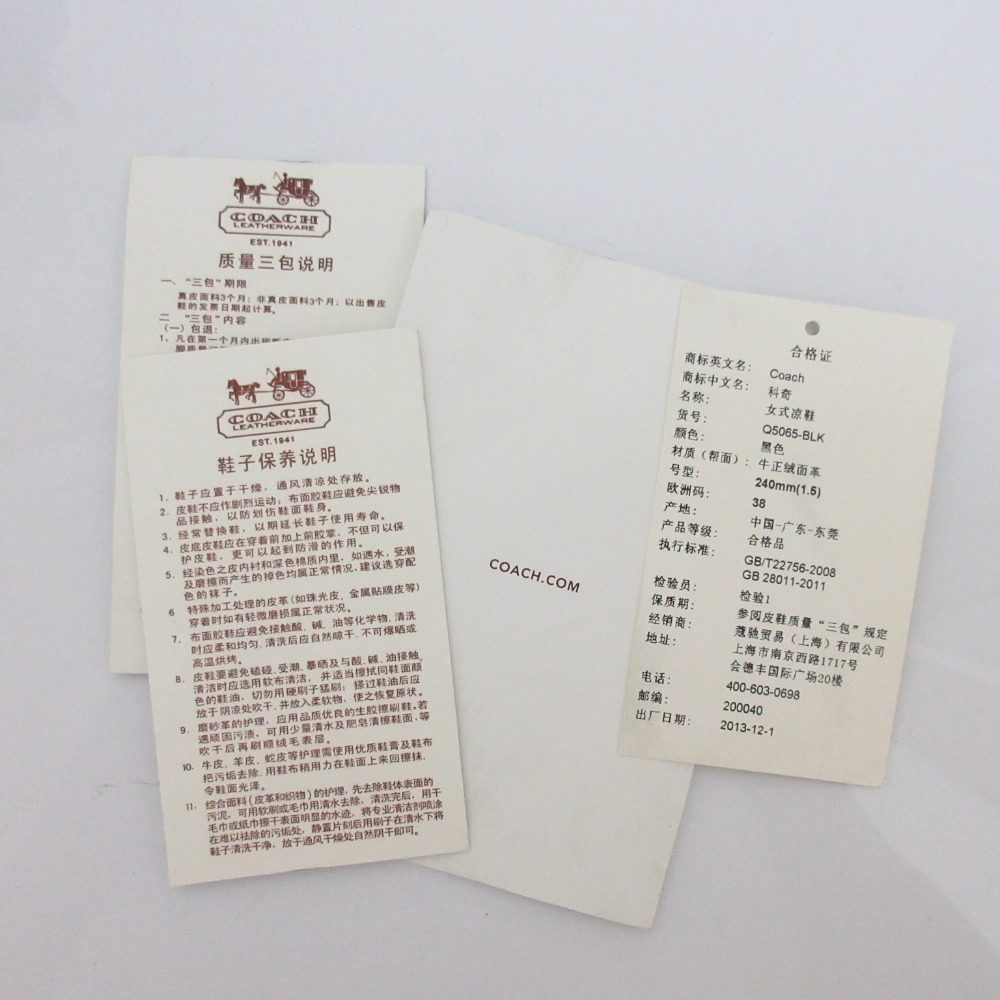 COACH
LEATHERWARE
EST.1941
质量三包说明
一、“三包”期限
真皮面料3个月；非真皮面料3个月；以出售皮
鞋的发票日期起计算。
二 “三包”内容
（一）包退：
1、凡在第一个月内出现
COACH
LEATHERWARE
EST.1941
鞋子保养说明
1. 鞋子应置于干燥，通风清凉处存放。
2. 皮鞋不应作剧烈运动；布面胶鞋应避免尖锐物
品接触，以防划伤鞋面鞋身。
3. 经常替换鞋，以期延长鞋子使用寿命。
4. 皮底皮鞋应在穿着前加上前胶掌，不但可以保
护皮鞋，更可以起到防滑的作用。
5. 经染色之皮内衬和深色棉质内里，如遇水，受潮
及磨擦而产生的掉色均属正常情况，建议选穿配
色的袜子。
6 特殊加工处理的皮革(如珠光皮、金属贴膜皮等)
穿着时如有轻微磨损属正常状况。
7. 布面胶鞋应避免接触酸、碱、油等化学物，清洗
时应柔和均匀，清洗后应自然晾干，不可爆晒或
高温烘烤。
8. 皮鞋要避免磕碰、受潮、暴晒及与酸、碱、油接触，
清洁时应选用软布清洁，并适当擦拭同鞋面颜
色的鞋油，切勿用硬刷子猛刷；搽过鞋油后应
放于阴凉处吹干，并放入柔软物，使之恢复原状。
9. 磨砂革的护理，应用品质优良的生胶擦刷鞋。若
遇顽固污渍，可用少量清水及肥皂清擦鞋面，等
吹干后再刷顺绒毛表层。
10. 牛皮、羊皮、蛇皮等护理需使用优质鞋膏及鞋布
把污垢去除，用鞋布稍用力在鞋面上来回擦抹，
令鞋面光泽。
11. 综合面料(皮革和织物)的护理，先去除鞋体表面的
污泥，可用软刷或毛巾用清水去除，清洗完后，用干
毛巾或纸巾擦干表面明显的水迹，将专业清洁剂喷涂
在难以祛除的污垢处，静置片刻后用刷子在清水下将
鞋子清洗干净，放于通风干燥处自然阴干即可。
COACH.COM
合格证
商标英文名： Coach
商标中文名： 科奇
名称： 女式凉鞋
货号： Q5065-BLK
颜色： 黑色
材质（帮面）：牛正绒面革
号型： 240mm(1.5)
欧洲码： 38
产地： 中国-广东-东莞
产品等级： 合格品
执行标准： GB/T22756-2008
GB 28011-2011
检验员： 检验1
保质期： 参阅皮鞋质量“三包”规定
经销商： 蔻驰贸易（上海）有限公司
地址： 上海市南京西路1717号
会德丰国际广场20楼
电话： 400-603-0698
邮编： 200040
出厂日期： 2013-12-1